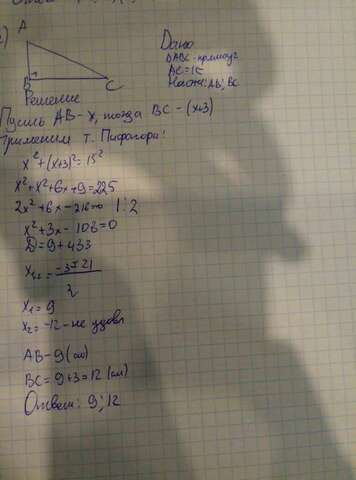 A
B
C
Дано
DABC - прямоуг
AC=15
Найти: AB; BC
Решение
Пусть AB - x, тогда BC - (x+3)
Применим т. Пифагора:
x²+(x+3)²=15²
x²+x²+6x+9=225
2x²+6x-216=0 |:2
x²+3x-108=0
D=9+433
x₁,₂ = -3±21
2
x₁=9
x₂=-12 - не удовл
AB-9(см)
BC=9+3=12(см)
Ответ: 9;12